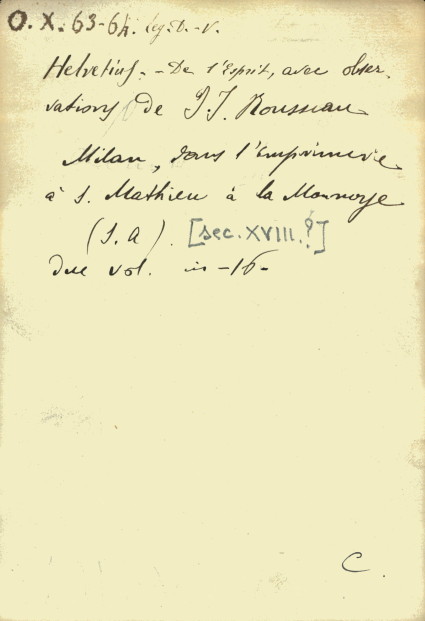 O. X. 63-64. leg. D.-V.
Helvetius. - De l'Esprit, avec obser-
vations de J. J. Rousseau
Milan, dans l'Emprimerie
à S. Mathieu à la Monnoye
(S. a). [sec. XVIII.?]
due vol. in -16-
C.